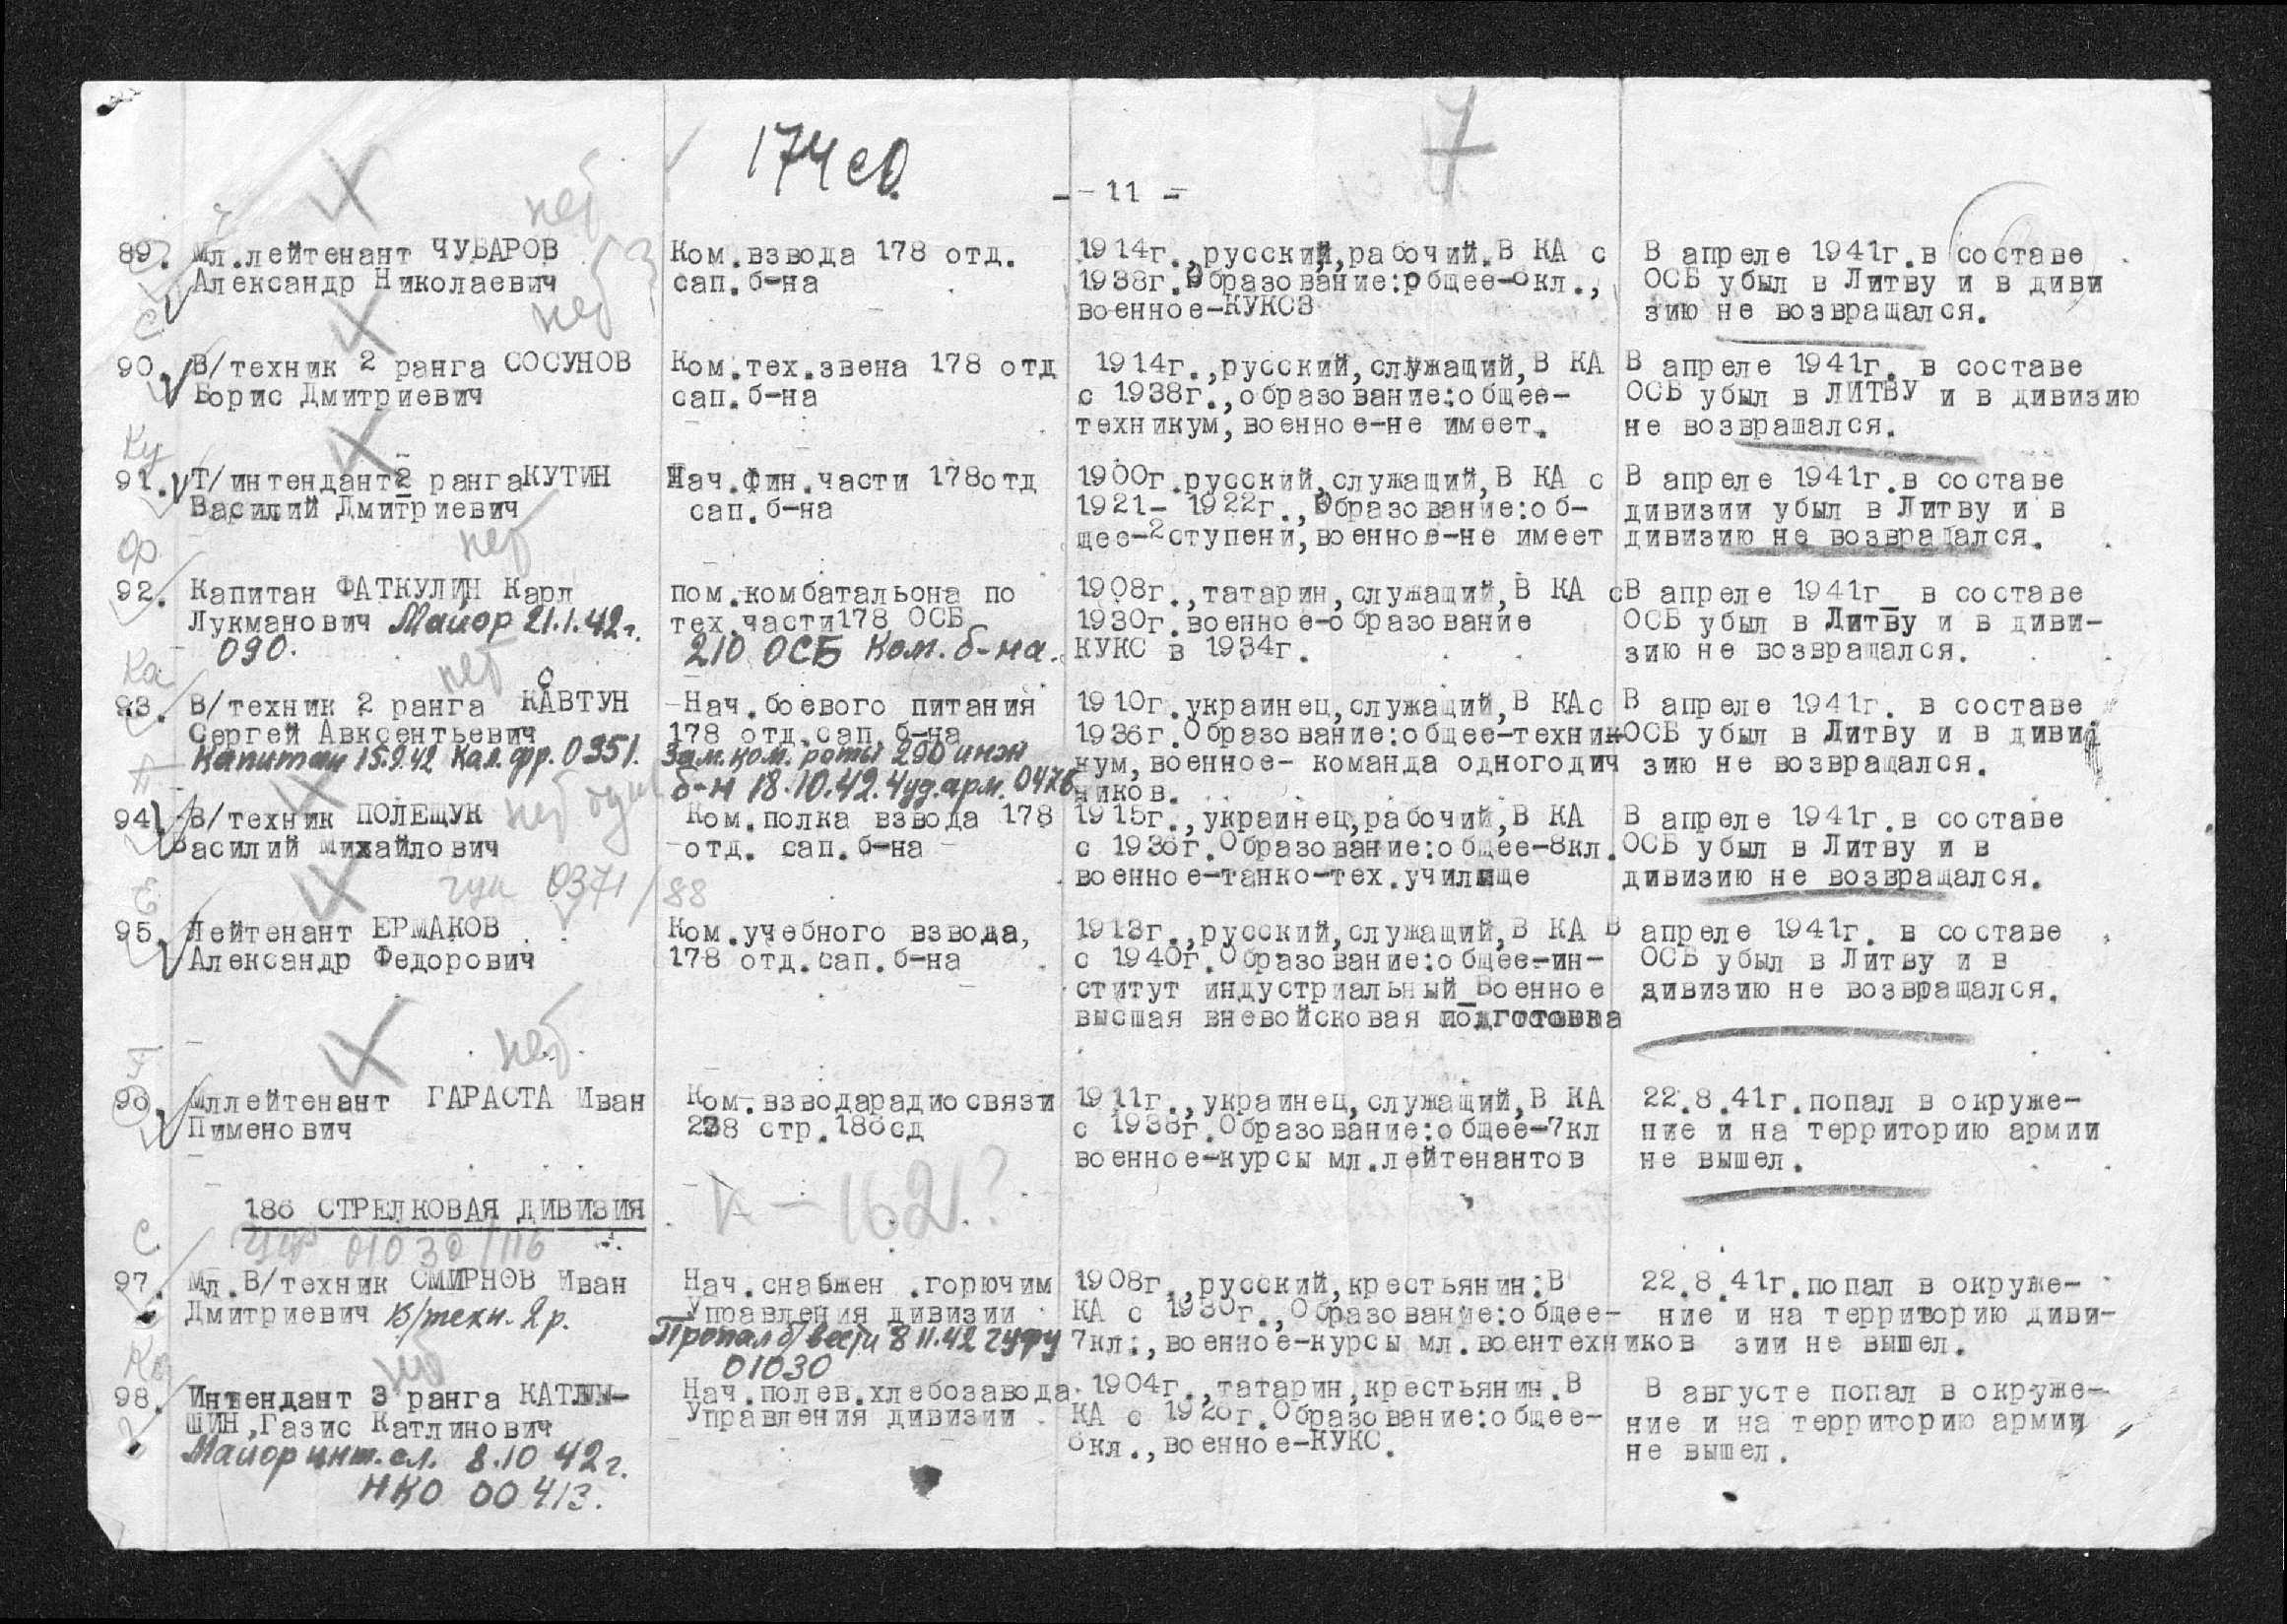 174 сд.
7
- 11 -
89. Мл.лейтенант ЧУБАРОВ
Александр Николаевич
нет
Ком.взвода 178 отд.
сап.б-на
1914г.,русский,рабочий.В КА с
1938г.Образование:общее-8кл.,
военное-КУКСЗ
В апреле 1941г.в составе
ОСБ убыл в Литву и в диви
зию не возвращался.
С
нет
90. В/техник 2 ранга СОСУНОВ
Борис Дмитриевич
Ком.тех.звена 178 отд
сап.б-на
1914г.,русский,служащий,В КА
с 1938г.,образование:общее-
техникум,военное-не имеет.
В апреле 1941г. в составе
ОСБ убыл в ЛИТВУ и в дивизию
не возвращался.
Ку
91. Т/интендант 2 ранга КУТИН
Василий Дмитриевич
Нач.фин.части 178отд
сап.б-на
1900г.русский,служащий,В КА с
1921- 1922г.,Образование:об-
щее-2ступени,военное-не имеет
В апреле 1941г.в составе
дивизии убыл в Литву и в
дивизию не возвращался.
Ф
нет
92. Капитан ФАТКУЛИН Карл
Лукманович Майор 21.1.42г.
090.
пом.комбатальона по
тех.части178 ОСБ
210 ОСБ Ком. б-на.
1908г.,татарин,служащий,В КА с
1930г.военное-образование
КУКС в 1934г.
В апреле 1941г_ в составе
ОСБ убыл в Литву и в диви-
зию не возвращался.
Ка
нет
о
93. В/техник 2 ранга КАВТУН
Сергей Авксентьевич
Капитан 15.9.42 Кал.фр. 0351.
Нач.боевого питания
178 отд.сап.б-на
Зам.ком. роты 290 инж
б-н 18.10.42. 4уд.арм. 0476
1910г.украинец,служащий,В КАс
1936г.Образование:общее-техни
кум,военное- команда одногодич
ников.
В апреле 1941г. в составе
ОСБ убыл в Литву и в диви
зию не возвращался.
П
нет
94. В/техник ПОЛЕЩУК
Василий михайлович
Ком.полка взвода 178
отд. сап.б-на
1915г.,украинец,рабочий,В КА
с 1936г.Образование:общее-8кл.
военное-танко-тех.училище
В апреле 1941г.в составе
ОСБ убыл в Литву и в
дивизию не возвращался.
Е
гук 0371/88
95. Лейтенант ЕРМАКОВ
Александр Федорович
Ком.учебного взвода,
178 отд.сап.б-на
1913г.,русский,служащий,В КА
с 1940г.Образование:общее-ин-
ститут индустриальный_Военное
высшая вневойсковая подготовка
В апреле 1941г. в составе
ОСБ убыл в Литву и в
дивизию не возвращался.
Г
нет
96. Мллейтенант ГАРАСТА Иван
Пименович
Ком.взводарадиосвязи
238 стр.186сд
1911г.,украинец,служащий,В КА
с 1938г.Образование:общее-7кл
военное-курсы мл.лейтенантов
22.8.41г.попал в окруже-
ние и на территорию армии
не вышел.
186 СТРЕЛКОВАЯ ДИВИЗИЯ
К-1621?
С.
01030/116
97. Мл.В/техник СМИРНОВ Иван
Дмитриевич в/техн. 2р.
Нач.снабжен .горючим
Управления дивизии
Пропал б/вести 8 11.42 гуфу
01030
1908г.,русский,крестьянин:В
КА с 1930г.,Образование:общее-
7кл:,военное-курсы мл.воентехников
22.8.41г.попал в окруже-
ние и на территорию диви-
зии не вышел.
Ка
нет
98. Интендант 3 ранга КАТЛЫ-
ШИН,Газис Катлинович
Майор инт. сл. 8.10 42г.
НКО 00413.
Нач.полев.хлебозавода
Управления дивизии
1904г.,татарин,крестьянин.В
КА с 1926г.Образование:общее-
6кл.,военное-КУКС.
В августе попал в окруже-
ние и на территорию армии
не вышел.